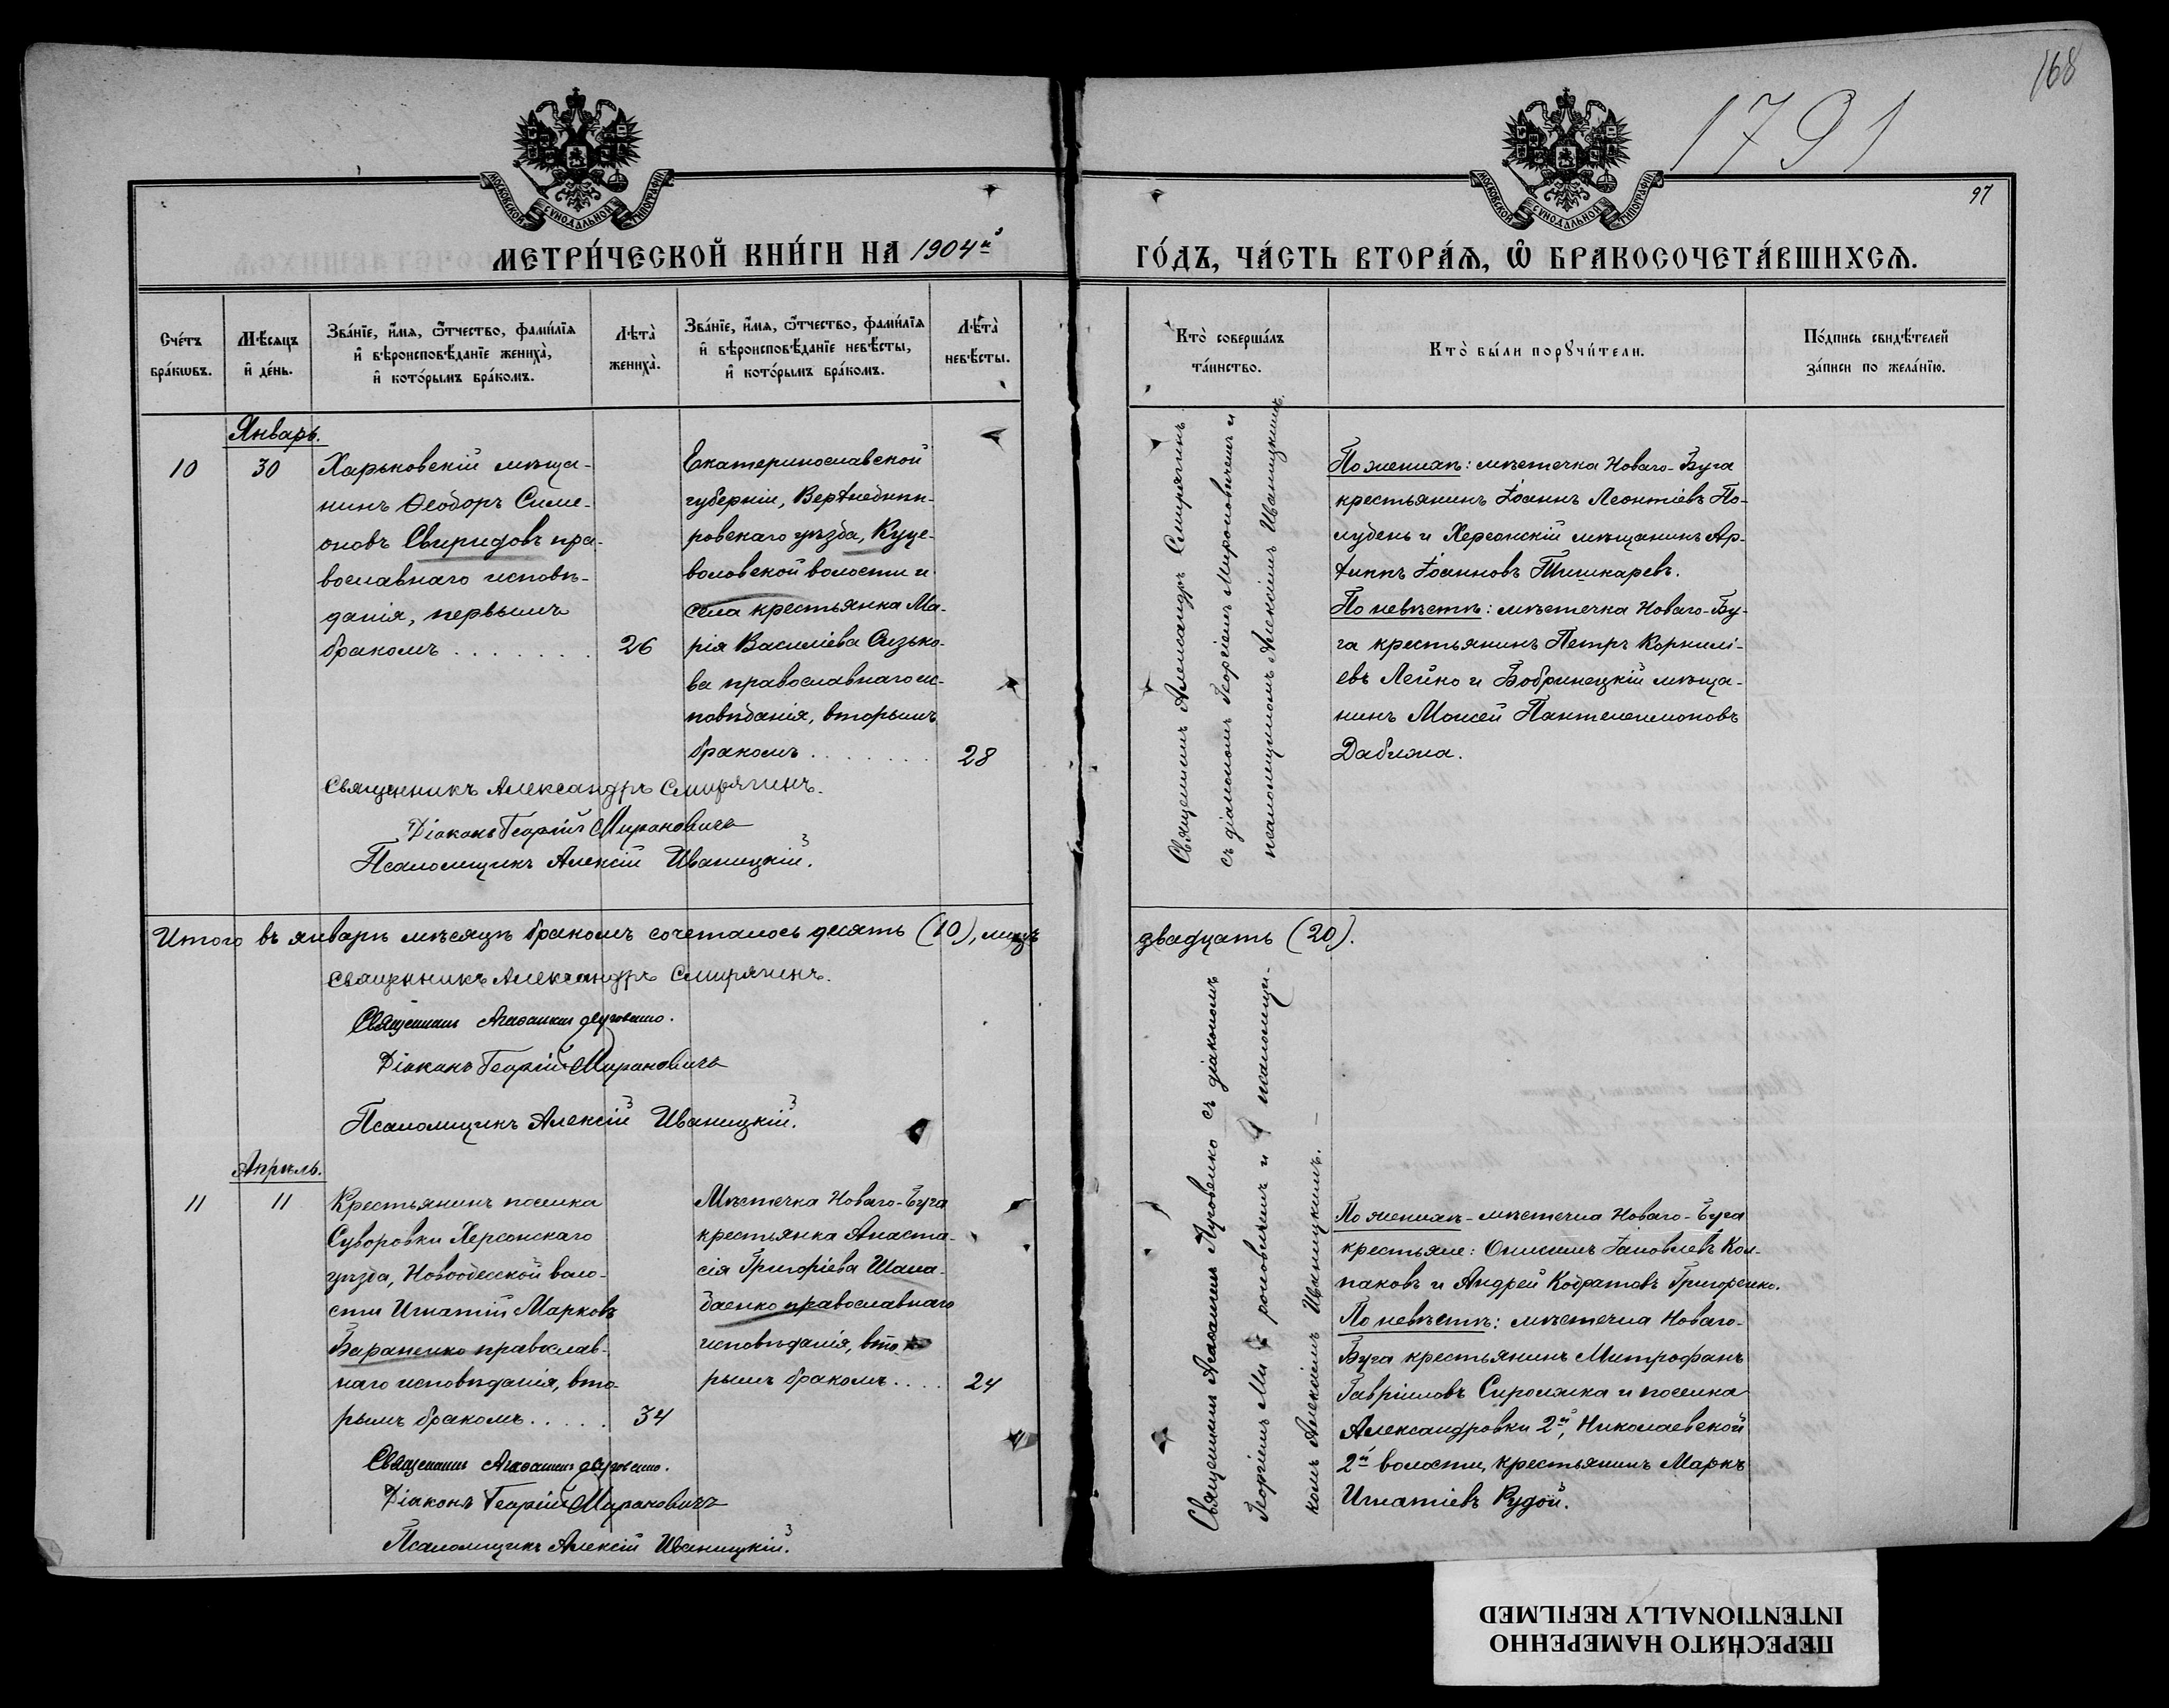 168
1791
97
МОСКОВСКОЙ СУНОДАЛЬНОЙ ТИПОГРАФІИ
МОСКОВСКОЙ СУНОДАЛЬНОЙ ТИПОГРАФІИ
МЕТРИ́ЧЕСКОЙ КНИ́ГИ НА 1904й
ГО́ДЪ, ЧА́СТЬ ВТОРА́Ѧ, Ѽ БРАКОСОЧЕТА́ВШИХСѦ.
Сче́тъ бра́кѡвъ.
Мѣ́сяцъ и҆ де́нь.
Зва́нїе, и҆́мя, ѻ҆́тчество, фами́лїя и҆ вѣроисповѣ́данїе жениха̀, и҆ кото́рымъ бра́комъ.
Лѣта̀ жениха̀.
Зва́нїе, и҆́мя, ѻ҆́тчество, фами́лїя и҆ вѣроисповѣ́данїе невѣ́сты, и҆ кото́рымъ бра́комъ.
Лѣта̀ невѣ́сты.
Кто̀ соверша́лъ та́инство.
Кто̀ бы́ли порꙋчи́тели.
По́дпись свидѣ́телей за́писи по жела́нїю.
Январь.
10
30
Харьковскій мѣща-
нинъ Ѳеодоръ Симе-
оновъ Свиридовъ пра-
вославнаго исповѣ-
данія, первымъ
бракомъ . . . . . . .
26
Екатеринославской
губерніи, Верхнеднѣп-
ровскаго уѣзда, Куце-
воловской волости и
села крестьянка Ма-
рія Василіева Сизько-
ва православнаго ис-
повѣданія, вторымъ
бракомъ . . . . . . .
28
Священникъ Александръ Смирягинъ
съ діакономъ Георгіемъ Мироновичемъ и
псаломщикомъ Алексіемъ Иваницкимъ.
По женихѣ: мѣстечка Новаго-Буга
крестьянинъ Іоаннъ Леонтіевъ По-
лубень и Херсонскій мѣщанинъ Ар-
хиппъ Іоанновъ Тишкаревъ.
По невѣстѣ: мѣстечка Новаго-Бу-
га крестьянинъ Петръ Корнилі-
евъ Лейко и Бобринецкій мѣща-
нинъ Моисей Пантелеимоновъ
Дабижа.
Священникъ Александръ Смирягинъ.
Діаконъ Георгій Мироновичъ
Псаломщикъ Алексій Иваницкій.
Итого въ январѣ мѣсяцѣ бракомъ сочеталось десять (10), лицъ
двадцать (20).
Священникъ Александръ Смирягинъ.
Священникъ Агаѳангелъ Луговенко.
Діаконъ Георгій Мироновичъ
Псаломщикъ Алексій Иваницкій.
Апрѣль.
11
11
Крестьянинъ поселка
Суворовки Херсонскаго
уѣзда, Новоодесской воло-
сти Игнатій Марковъ
Бараненко православ-
наго исповѣданія, вто-
рымъ бракомъ . . . . .
34
Мѣстечка Новаго-Буга
крестьянка Анаста-
сія Григоріева Шала-
баенко православнаго
исповѣданія, вто-
рымъ бракомъ . . . .
24
Священникъ Агаѳангелъ Луговенко съ діакономъ
Георгіемъ Мироновичемъ и псаломщи-
комъ Алексіемъ Иваницкимъ. —
По женихѣ - мѣстечка Новаго-Буга
крестьяне: Онисимъ Іаковлевъ Кол-
паковъ и Андрей Кодратовъ Григоренко.
По невѣстѣ: мѣстечка Новаго-
Буга крестьянинъ Митрофанъ
Гавріиловъ Сироижка и поселка
Александровки 2й, Николаевской
2й волости, крестьянинъ Маркъ
Игнатіевъ Рудой.
Священникъ Агаѳангелъ Луговенко.
Діаконъ Георгій Мироновичъ
Псаломщикъ Алексій Иваницкій.
ПЕРЕСНЯТО НАМЕРЕННО
INTENTIONALLY REFILMED